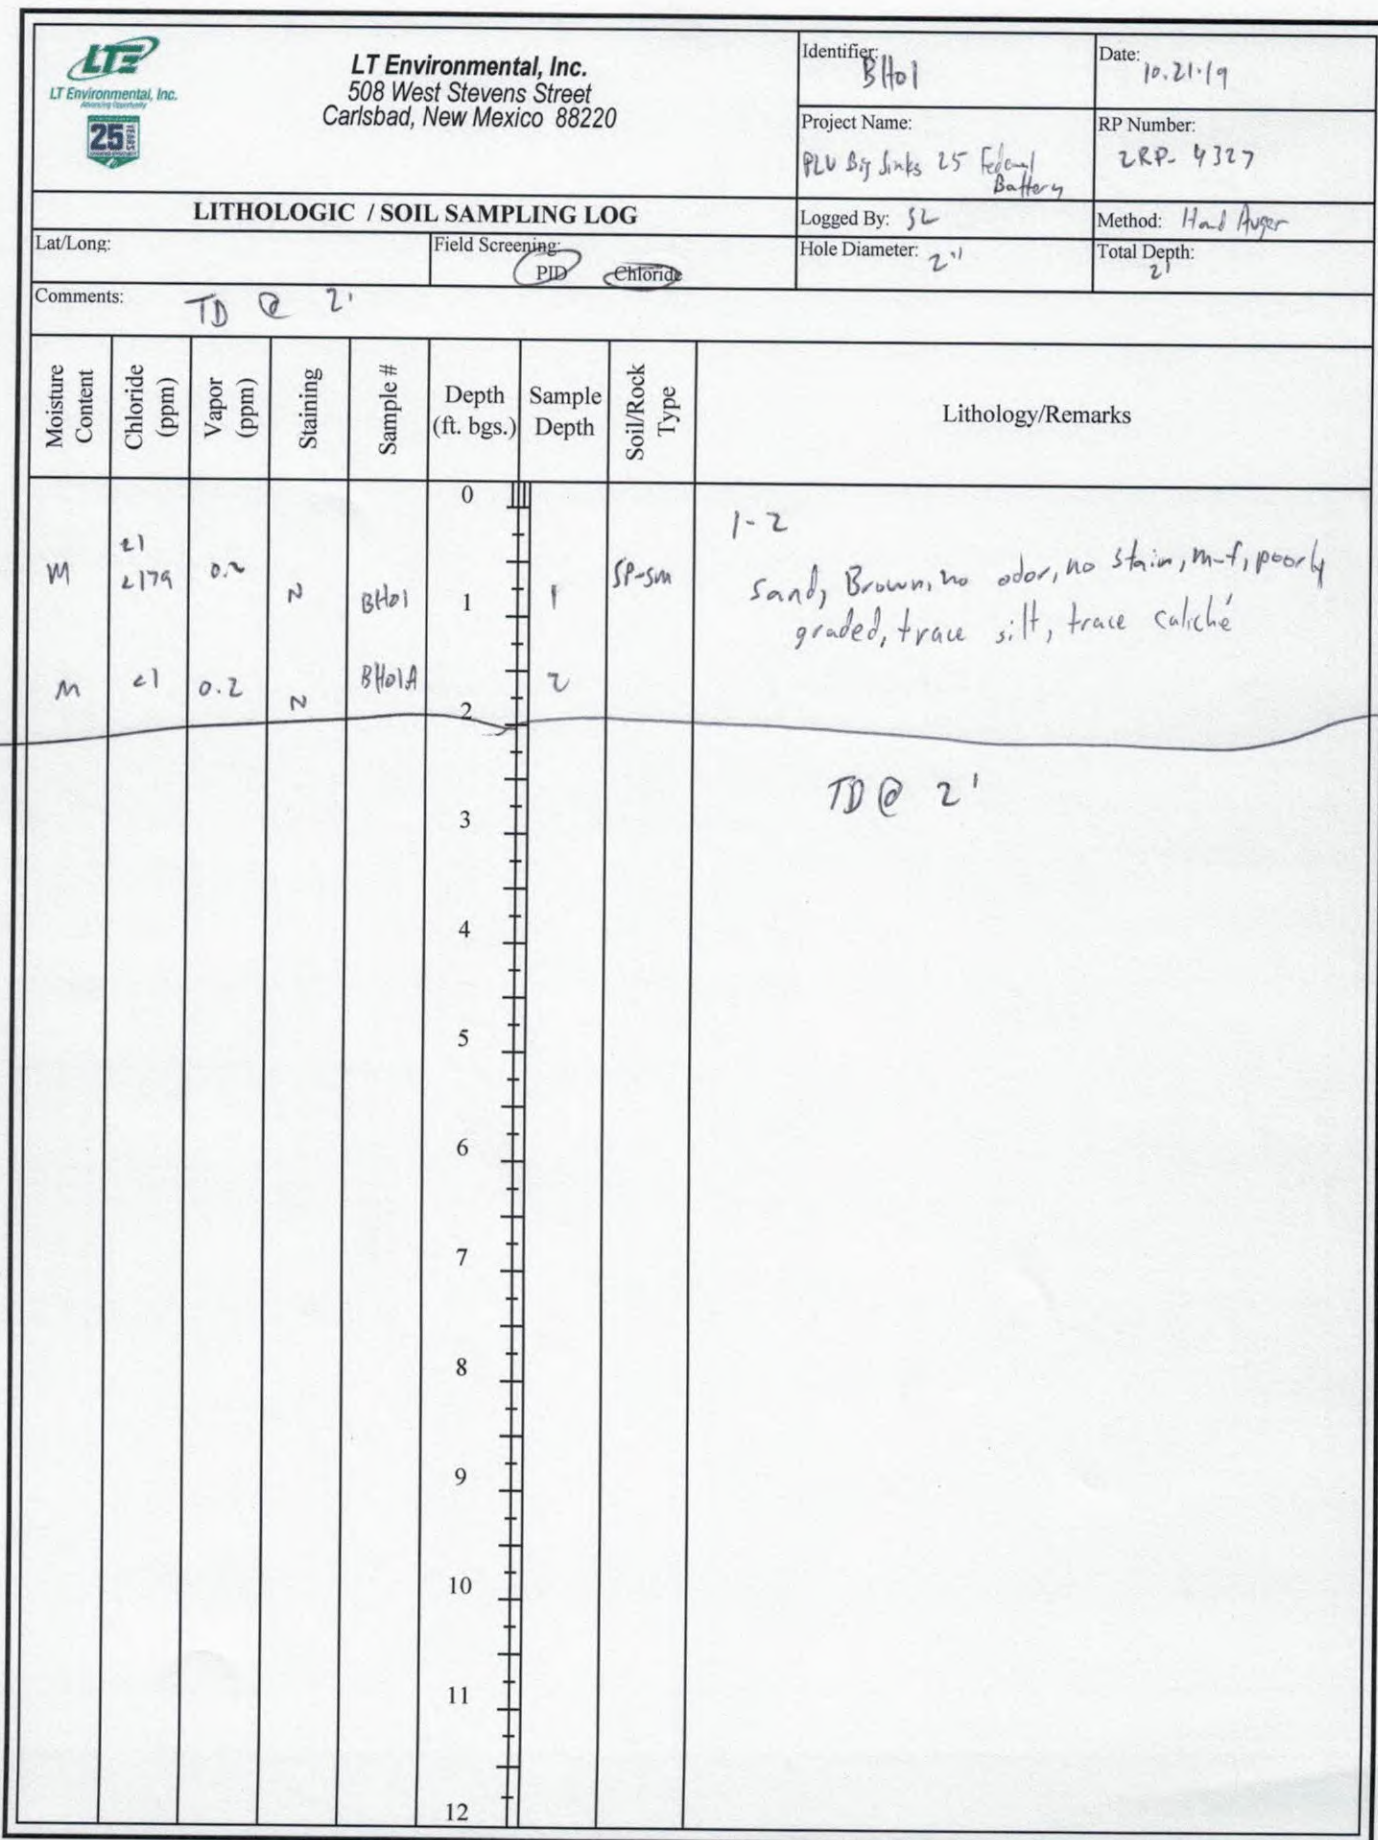 LTE
LT Environmental, Inc.
Advancing Opportunity
25 YEARS
LT Environmental, Inc.
508 West Stevens Street
Carlsbad, New Mexico 88220
Identifier: BH01
Date: 10.21.19
Project Name: PLU Big Sinks 25 Federal Battery
RP Number: 2RP-4327
LITHOLOGIC / SOIL SAMPLING LOG
Logged By: SL
Method: Hand Auger
Lat/Long:
Field Screening: PID Chloride
Hole Diameter: 2"
Total Depth: 2'
Comments: TD @ 2'
Moisture Content
Chloride (ppm)
Vapor (ppm)
Staining
Sample #
Depth (ft. bgs.)
Sample Depth
Soil/Rock Type
Lithology/Remarks
0
1-2
M <1 <179 0.2 N BH01 1 1 SP-SM
sand, Brown, no odor, no stain, m-f, poorly
graded, trace silt, trace caliché
M <1 0.2 N BH01A 2 2
TD @ 2'
3
4
5
6
7
8
9
10
11
12